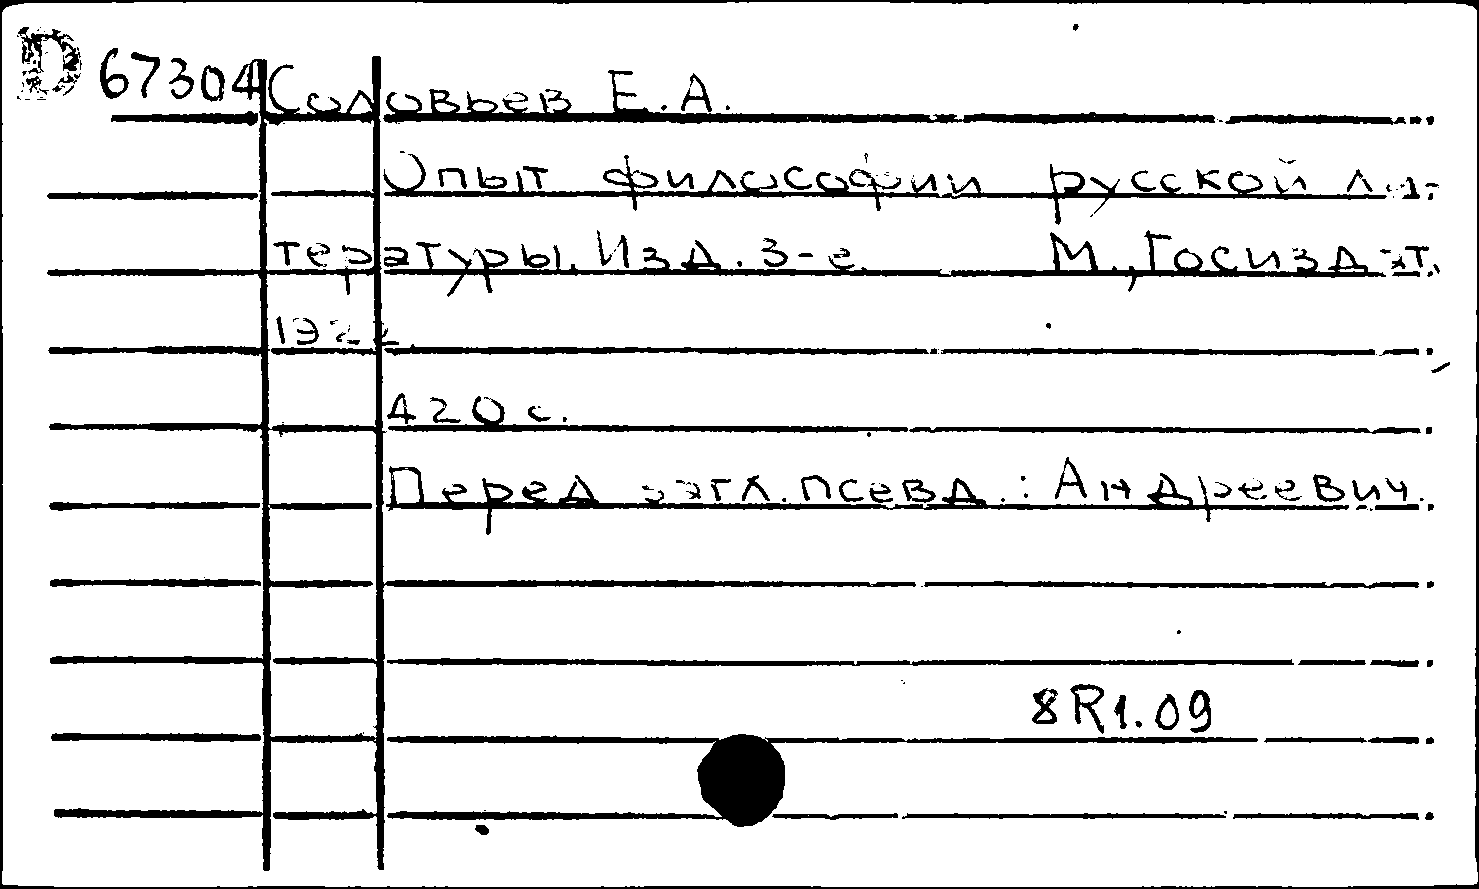 D 67304 Соловьев Е.А.
Опыт философии русской ли-
тературы. Изд. 3-е. М., Госиздат,
1922.
420 с.
Перед загл. псевд.: Андреевич.
8R1.09